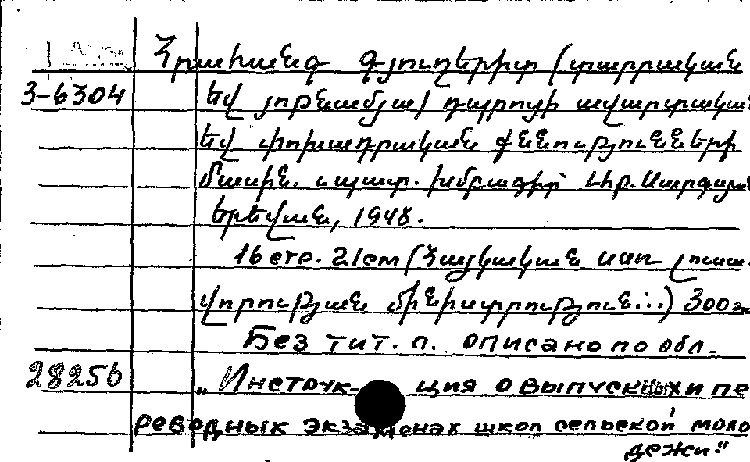 Հրահանգ գյուղերիտ (տարրական
3-6304 եվ յոթնամյա) դպրոցի ավարտական
եվ փոխադրական քննությունների
մասին. պատ. խմբագիր Սարգսյան
Երեվան, 1948.
16 стр. 21см (Հայկական ՍՍՌ լուսա.
վորության մինիստրություն...) 300 э
Без тит. л. описано по обл.
28256 „Инструк- ция о выпускных и пе
реводных экзаменах школ сельской моло
дежи."